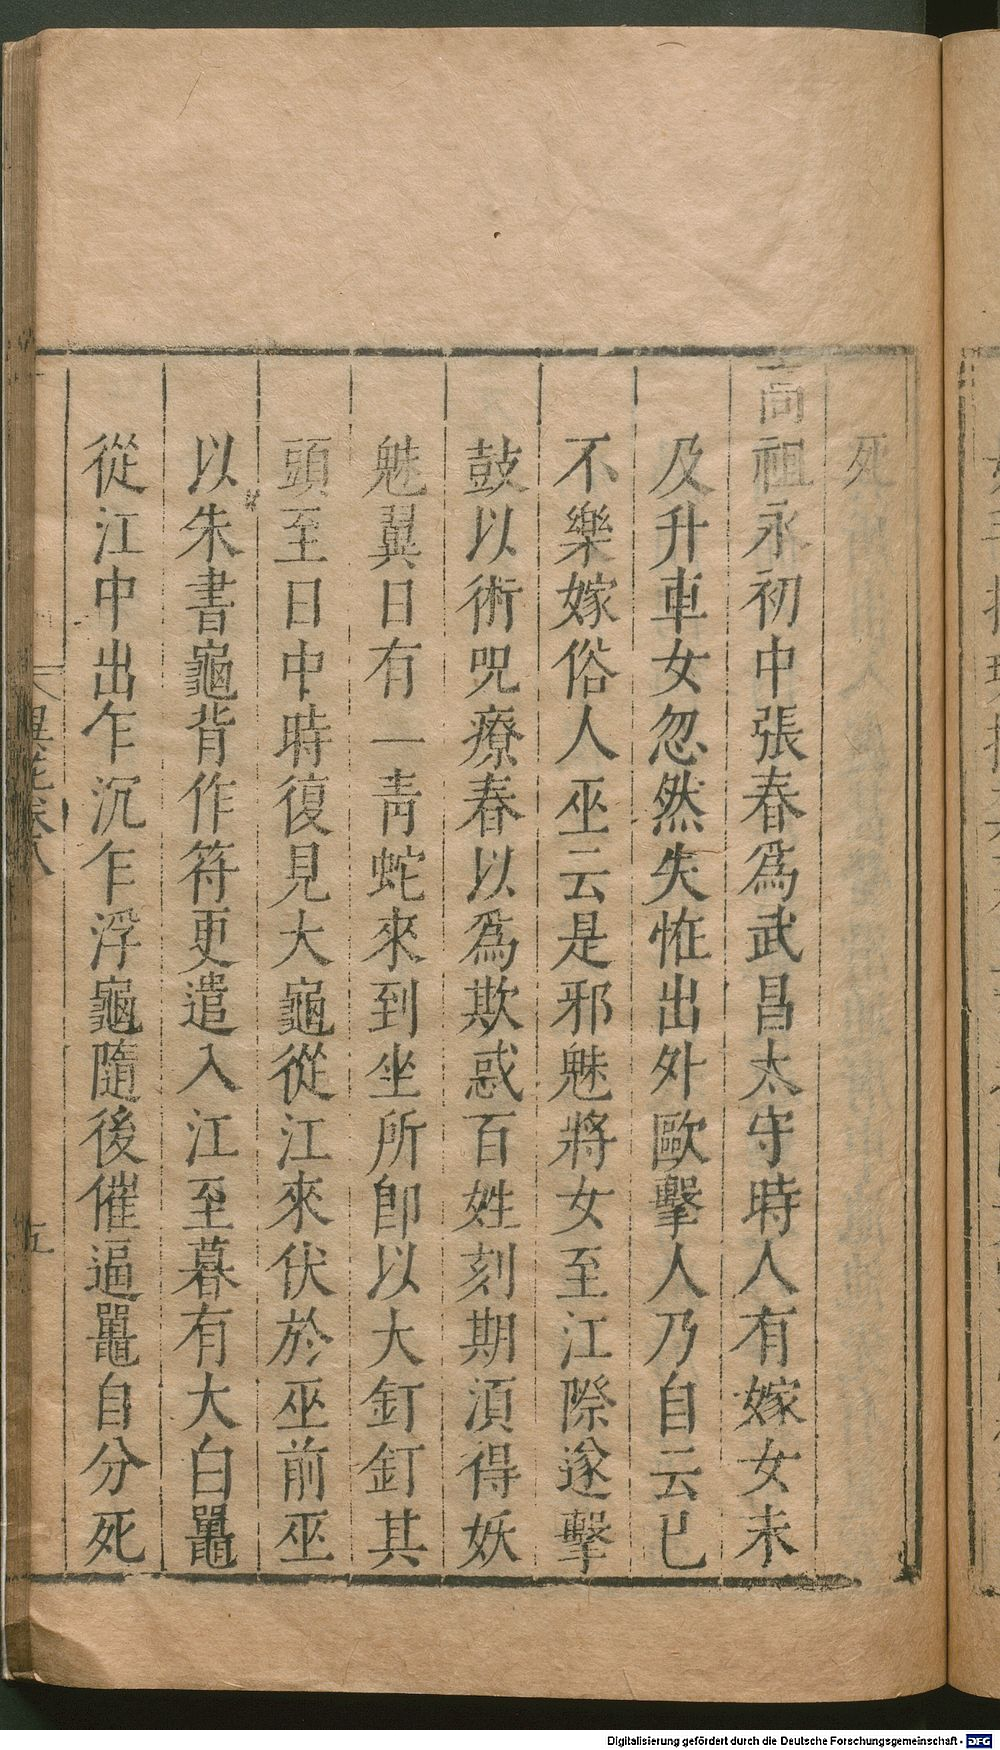 死
高祖永初中張春爲武昌太守時人有嫁女未
及升車女忽然失恠出外歐擊人乃自云已
不樂嫁俗人巫云是邪魅將女至江際遂擊
鼓以術呪療春以爲欺惑百姓刻期須得妖
魅翼日有一靑蛇來到坐所卽以大釘釘其
頭至日中時復見大龜從江來伏於巫前巫
以朱書龜背作符更遣入江至暮有大白鼉
從江中出乍沉乍浮龜隨後催逼鼉自分死
異苑卷八
五
Digitalisierung gefördert durch die Deutsche Forschungsgemeinschaft - DFG